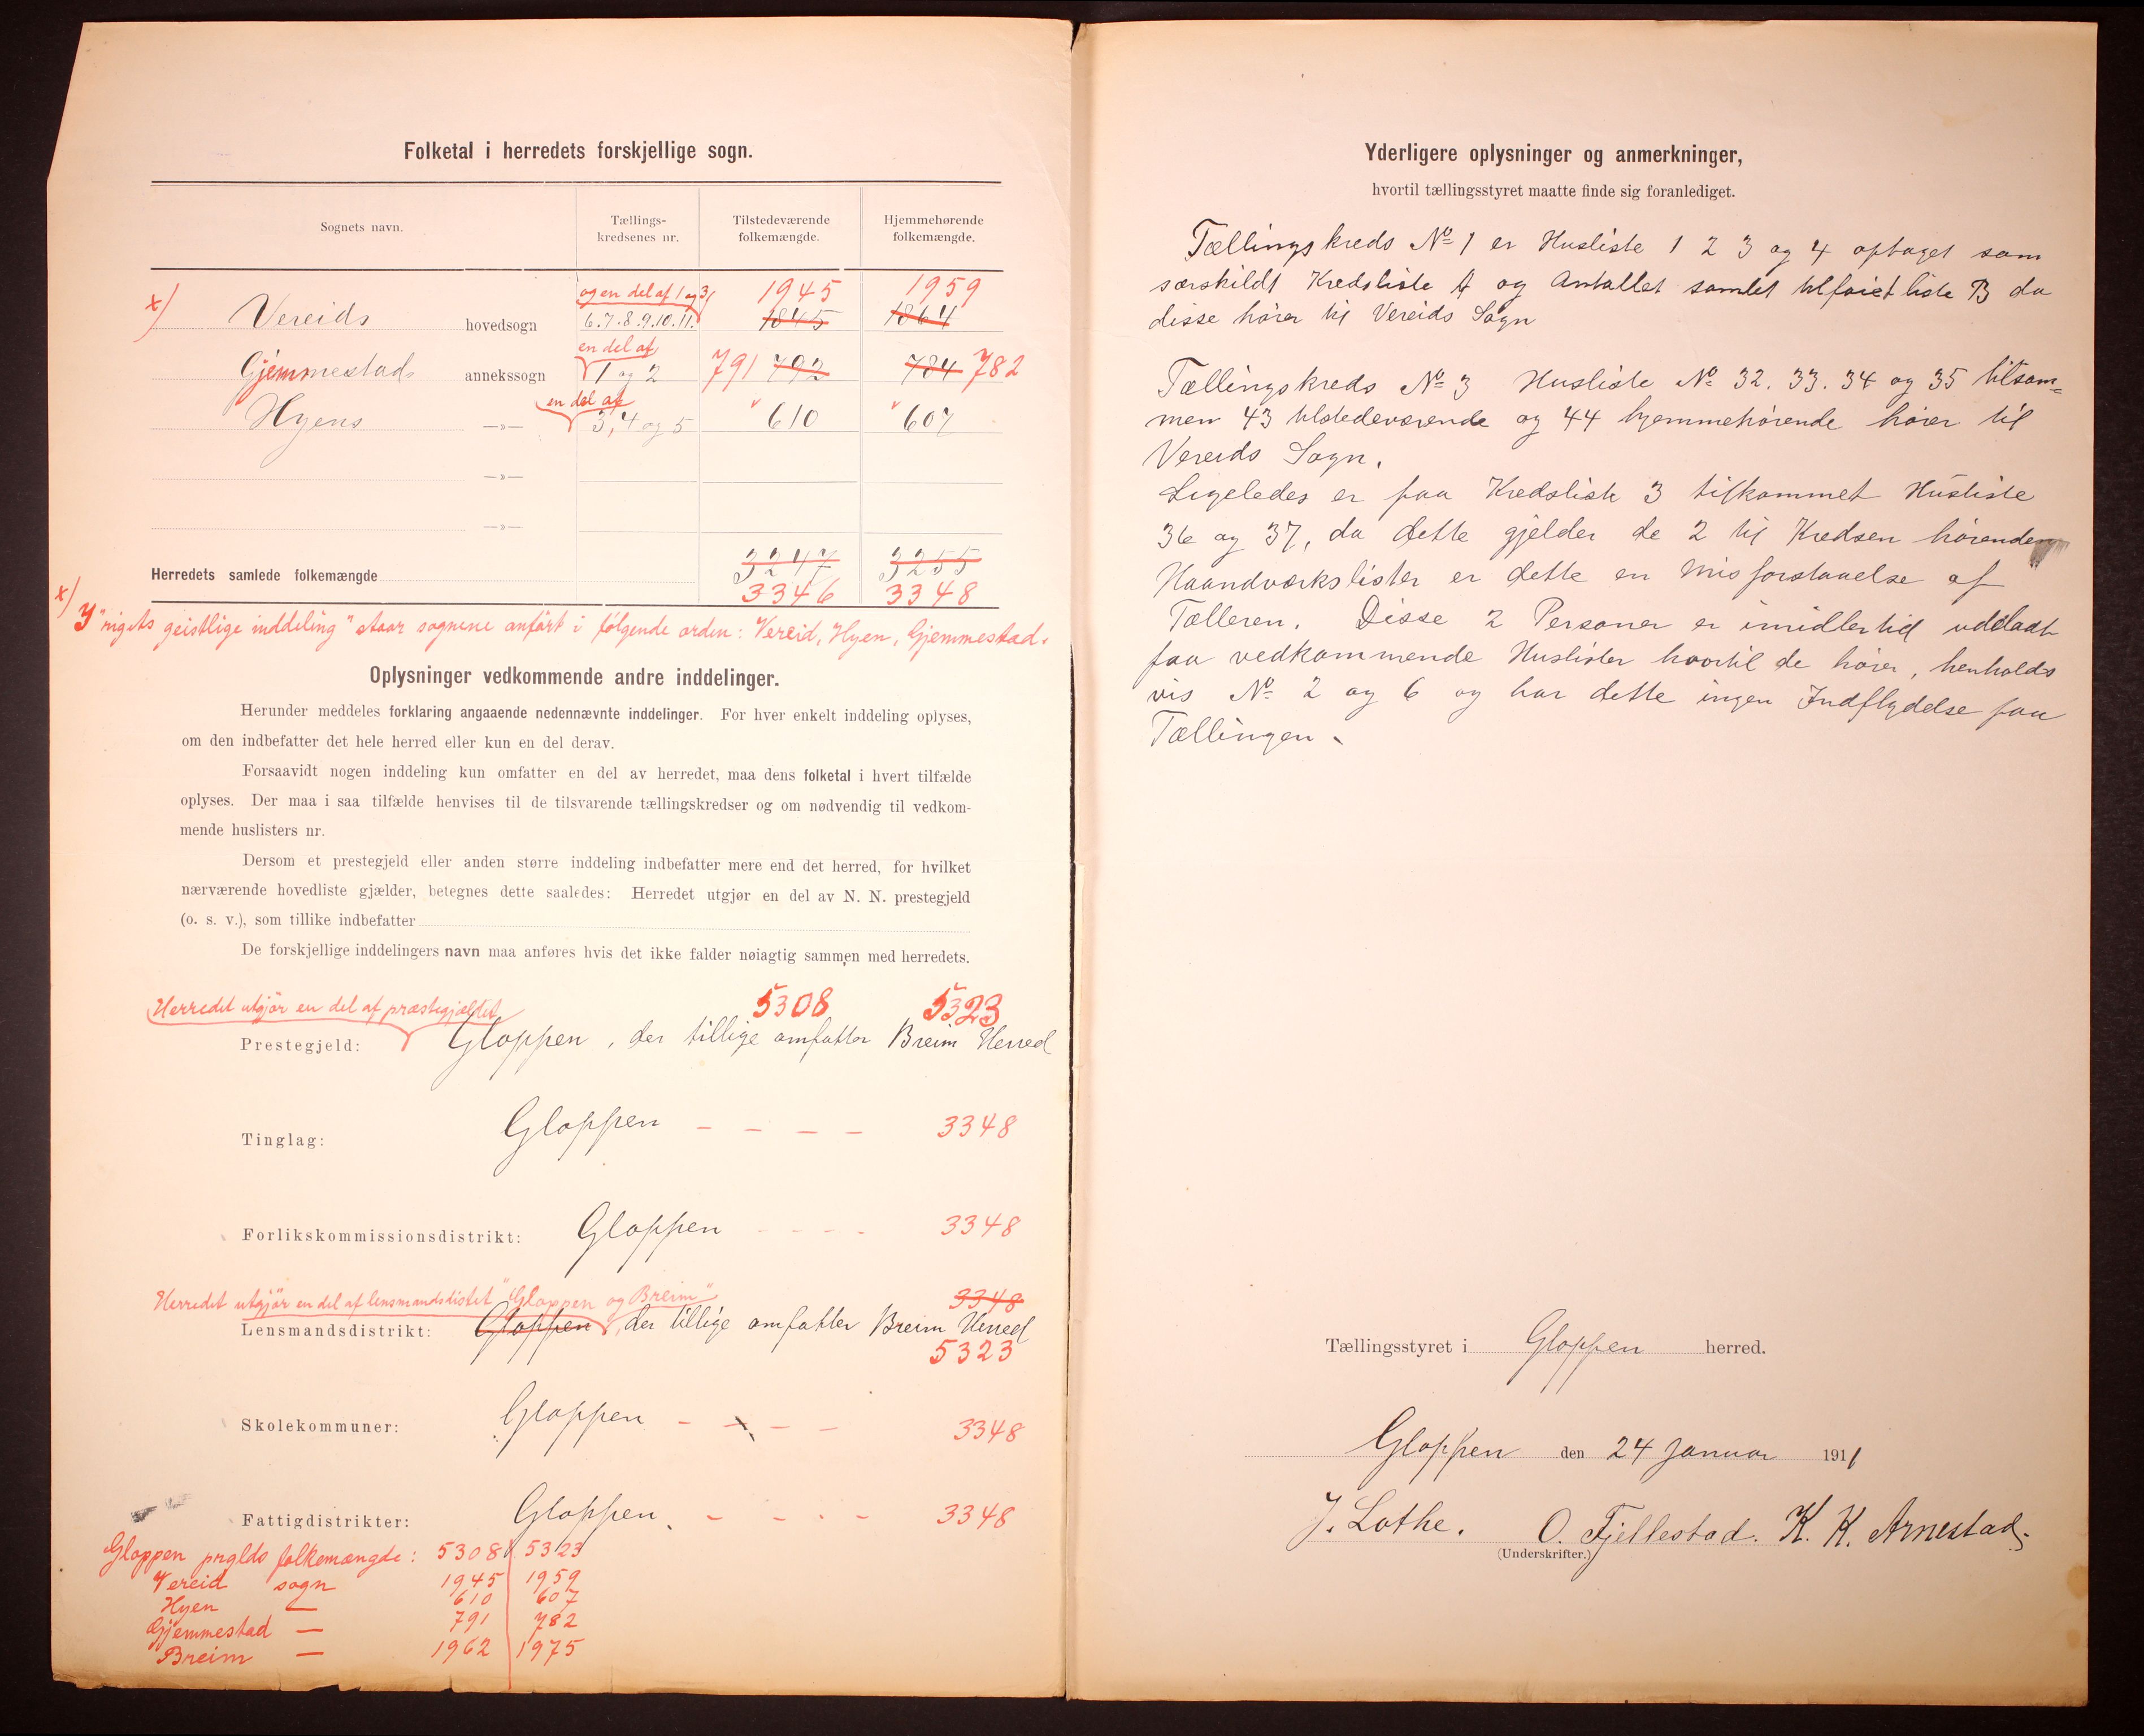 Folketal i herredets forskjellige sogn.
Sognets navn.
Tællings-
kredsenes nr.
Tilstedeværende
folkemængde.
Hjemmehørende
folkemængde.
x)
og en del af 1 og 3
1945
1959
Vereids hovedsogn 6.7.8.9.10.11. 1845 1864
en del af
Gjemmestads annekssogn 1 og 2 791 792 784 782
en del af
Hyens —»— 3, 4 og 5 610 607
—»—
—»—
3247 3255
Herredets samlede folkemængde
3346 3348
x) I "rigets geistlige inddeling" staar sognene anført i følgende orden: Vereid, Hyen, Gjemmestad.
Oplysninger vedkommende andre inddelinger.
Herunder meddeles forklaring angaaende nedennævnte inddelinger. For hver enkelt inddeling oplyses,
om den indbefatter det hele herred eller kun en del derav.
Forsaavidt nogen inddeling kun omfatter en del av herredet, maa dens folketal i hvert tilfælde
oplyses. Der maa i saa tilfælde henvises til de tilsvarende tællingskredser og om nødvendig til vedkom-
mende huslisters nr.
Dersom et prestegjeld eller anden større inddeling indbefatter mere end det herred, for hvilket
nærværende hovedliste gjælder, betegnes dette saaledes: Herredet utgjør en del av N. N. prestegjeld
(o. s. v.), som tillike indbefatter
De forskjellige inddelingers navn maa anføres hvis det ikke falder nøiagtig sammen med herredets.
Herredet utgjør en del af præstegjældet 5308 5323
Prestegjeld: Gloppen, der tillige omfatter Breim Herred
Tinglag: Gloppen – – – – 3348
Forlikskommissionsdistrikt: Gloppen - - - - 3348
Herredet utgjør en del af lensmandsdistret "Gloppen og Breim" 3348
Lensmandsdistrikt: Gloppen, der tillige omfatter Breim Herred
5323
Skolekommuner: Gloppen – – – – 3348
Fattigdistrikter: Gloppen. – – – – 3348
Gloppen prglds folkemængde: 5308 5323
Vereid sogn 1945 1959
Hyen — 610 607
Gjemmestad — 791 782
Breim — 1962 1975
Yderligere oplysninger og anmerkninger,
hvortil tællingsstyret maatte finde sig foranlediget.
Tællingskreds No 1 er Husliste 1 2 3 og 4 optaget som
særskildt Kredsliste A og Antallet samlet tilføiet liste B da
disse hører til Vereids Sogn
Tællingskreds No 3 Husliste No 32. 33. 34 og 35 tilsam=
men 43 tilstedeværende og 44 hjemmehørende hører til
Vereids Sogn.
Ligeledes er paa Kredsliste 3 tilkommet Husliste
36 og 37, da dette gjelder de 2 til Kredsen hørende
Haandværkslister er dette en Misforstaaelse af
Tælleren. Disse 2 Personer er imidlertid uddladt
paa vedkommende Huslister hvortil de hører, henholds
vis No 2 og 6 og har dette ingen Indflydelse paa
Tællingen.
Tællingsstyret i Gloppen herred.
Gloppen den 24 Januar 1911
J. Lothe. O. Fjellestad. K. K. Arnestad.
(Underskrifter.)